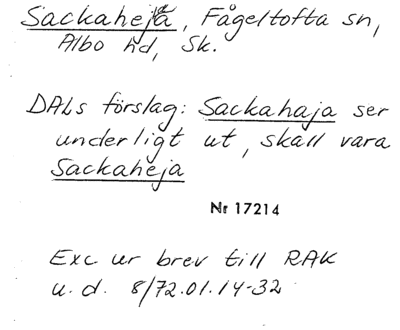 Sackaheja, Fågeltofta sn,
Albo hd, Sk.
DALs förslag: Sackahaja ser
underligt ut, skall vara
Sackaheja
Nr 17214
Exc ur brev till RAK
u.d. 8/72.01.14-32